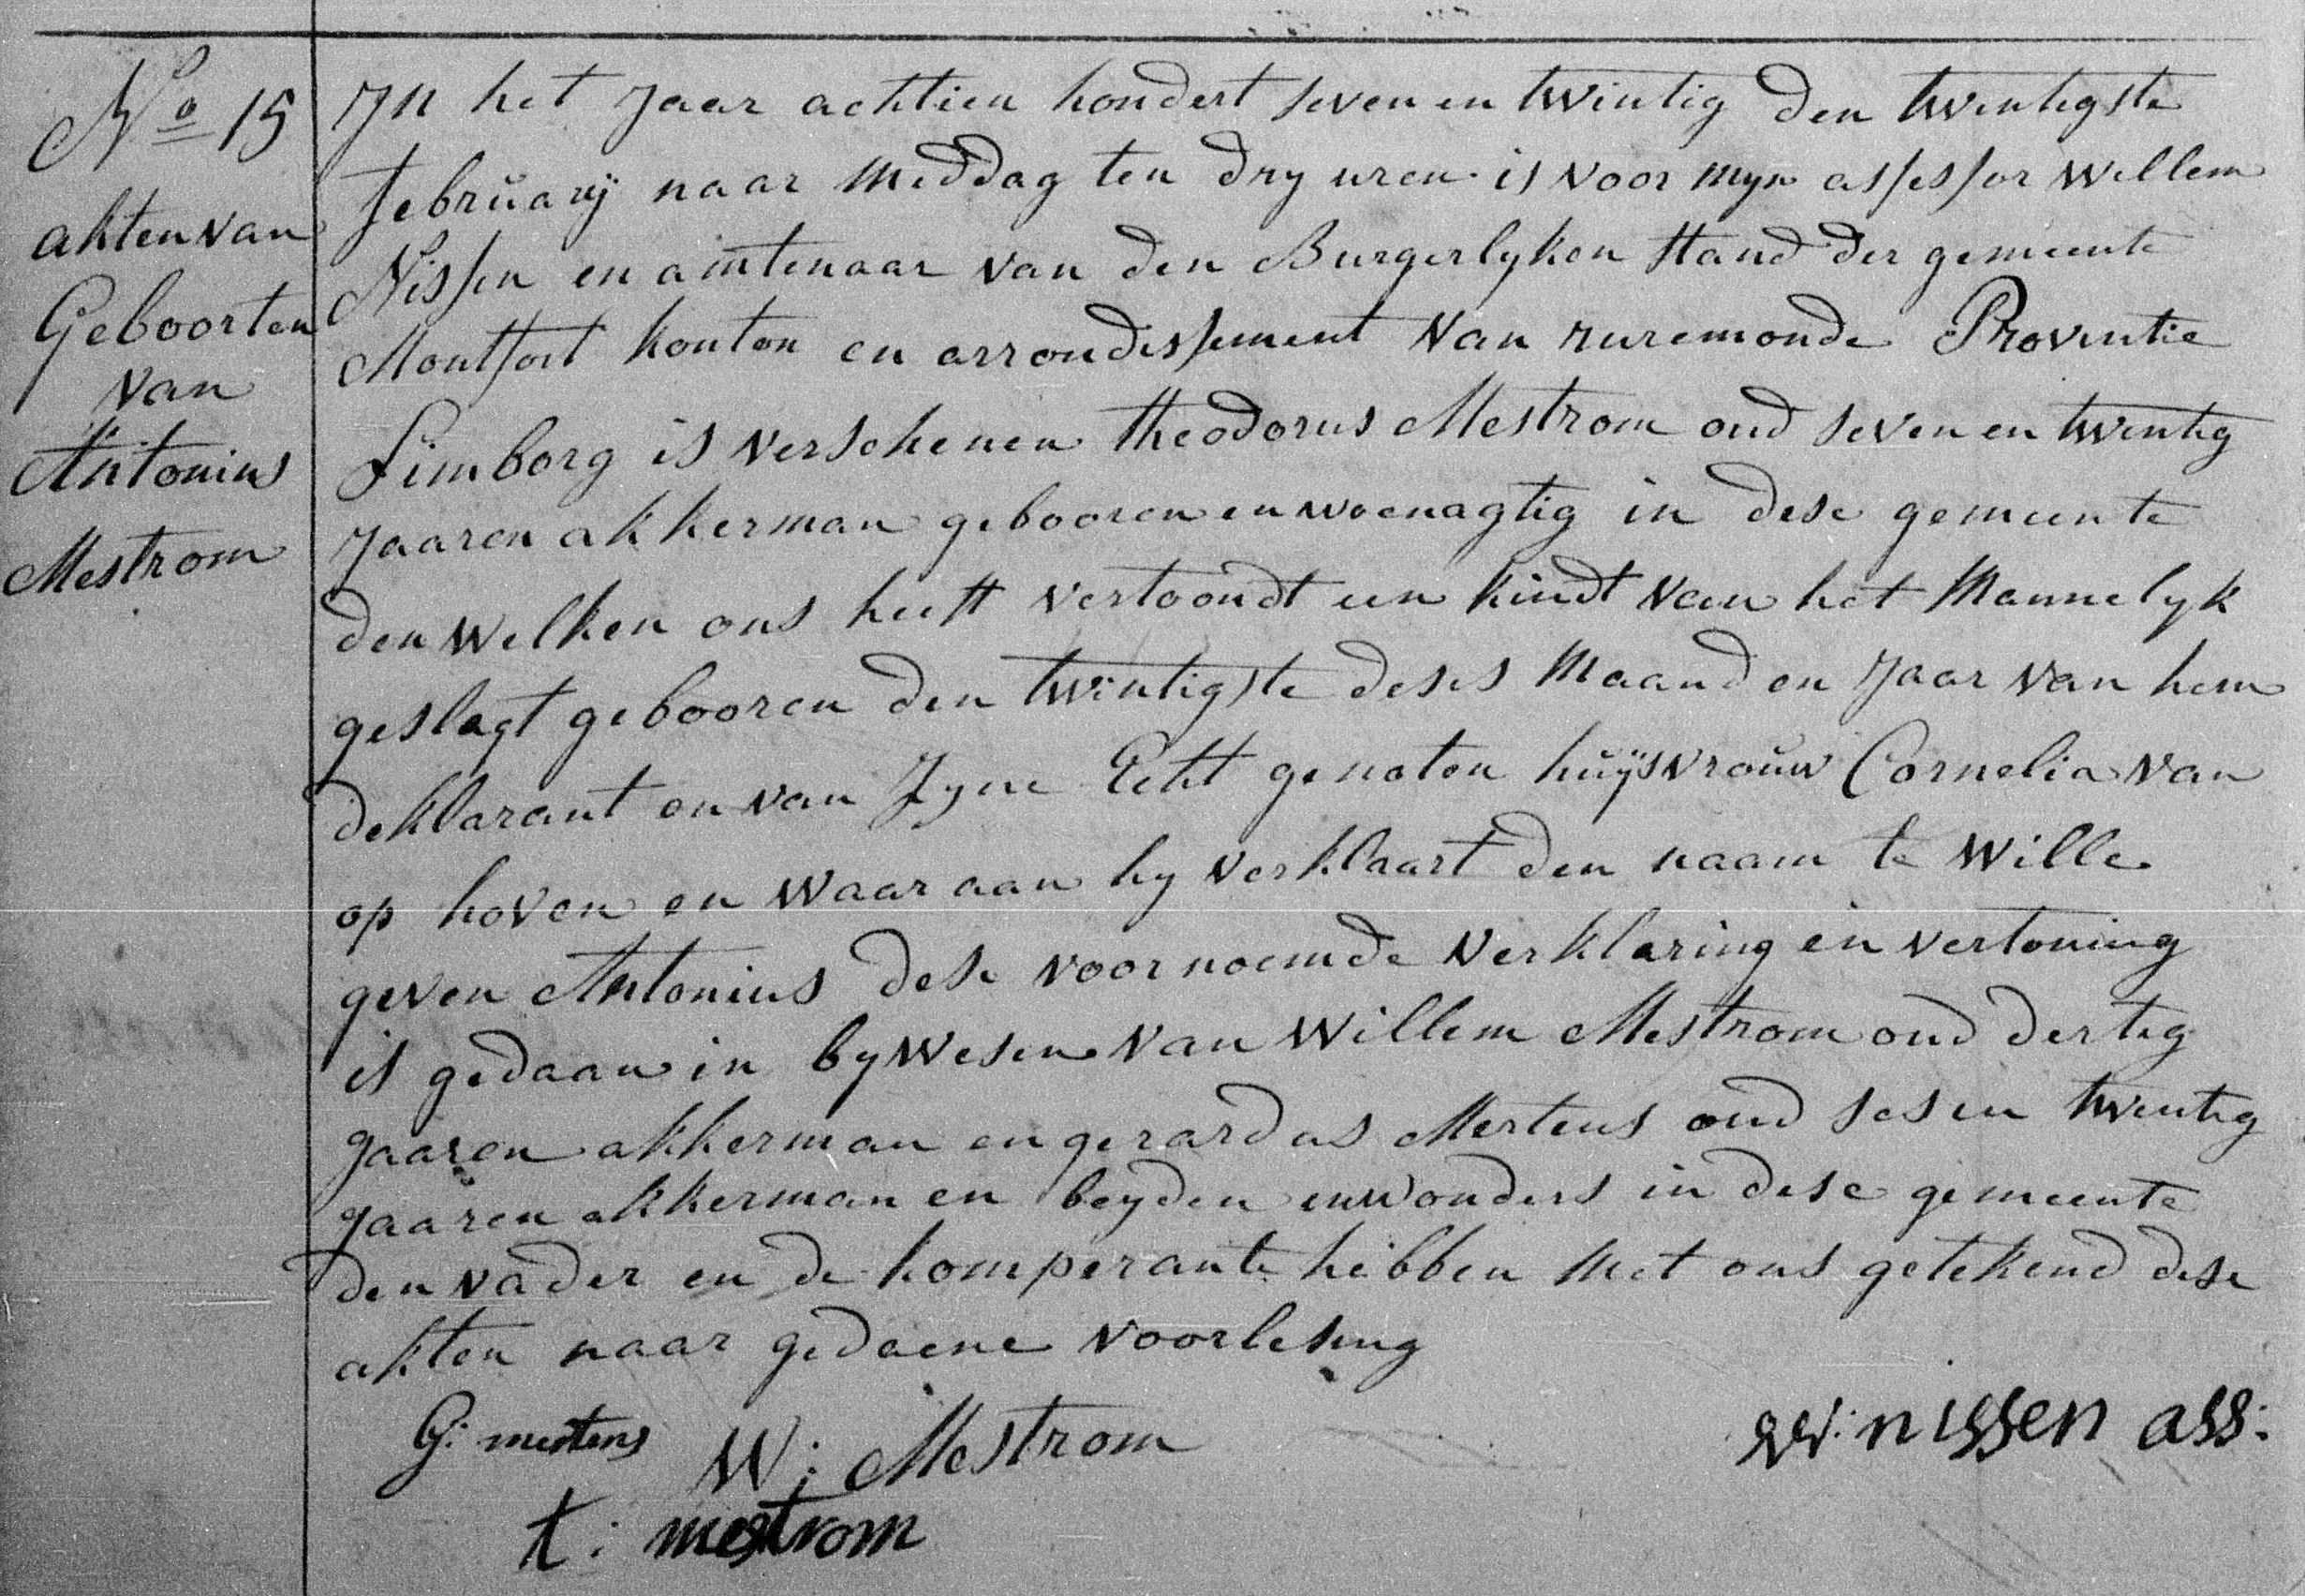 No 15
akten van
Geboorten
van
Antonius
Mestrom
In het Jaar achttien hondert seven en twintig den twentigste
februarij naar middag ten dry uren is voor myn assessor willem
Nissen en amtenaar van den Burgerlyken stand der gemeente
Montfort kanton en arrondissement van ruremonde Proventie
Limborg is verschenen theodorus Mestrom oud seven en twentig
Jaaren akkerman gebooren en woenagtig in dese gemeente
den welken ons heeft vertoondt een kindt van het Mannelyk
geslagt gebooren den twintigste deses Maand en Jaar van hem
deklarant en van Zyne Echt genoten huijsvrouw Cornelia van
op hoven en waar aan hy verklaart den naam te wille
geven Antonius dese voornoemde verklaring en vertoning
is gedaan in bywesen van Willem Mestrom oud dertig
jaaren akkerman en gerardus Mertens oud ses en twentig
jaaren akkerman en beyden inwonders in dese gemeente
den vader en de komperante hebben met ons getekend dese
akten naar gedaene voorlesing
G: mertens W: Mestrom w: nissen ass:
t: mestrom